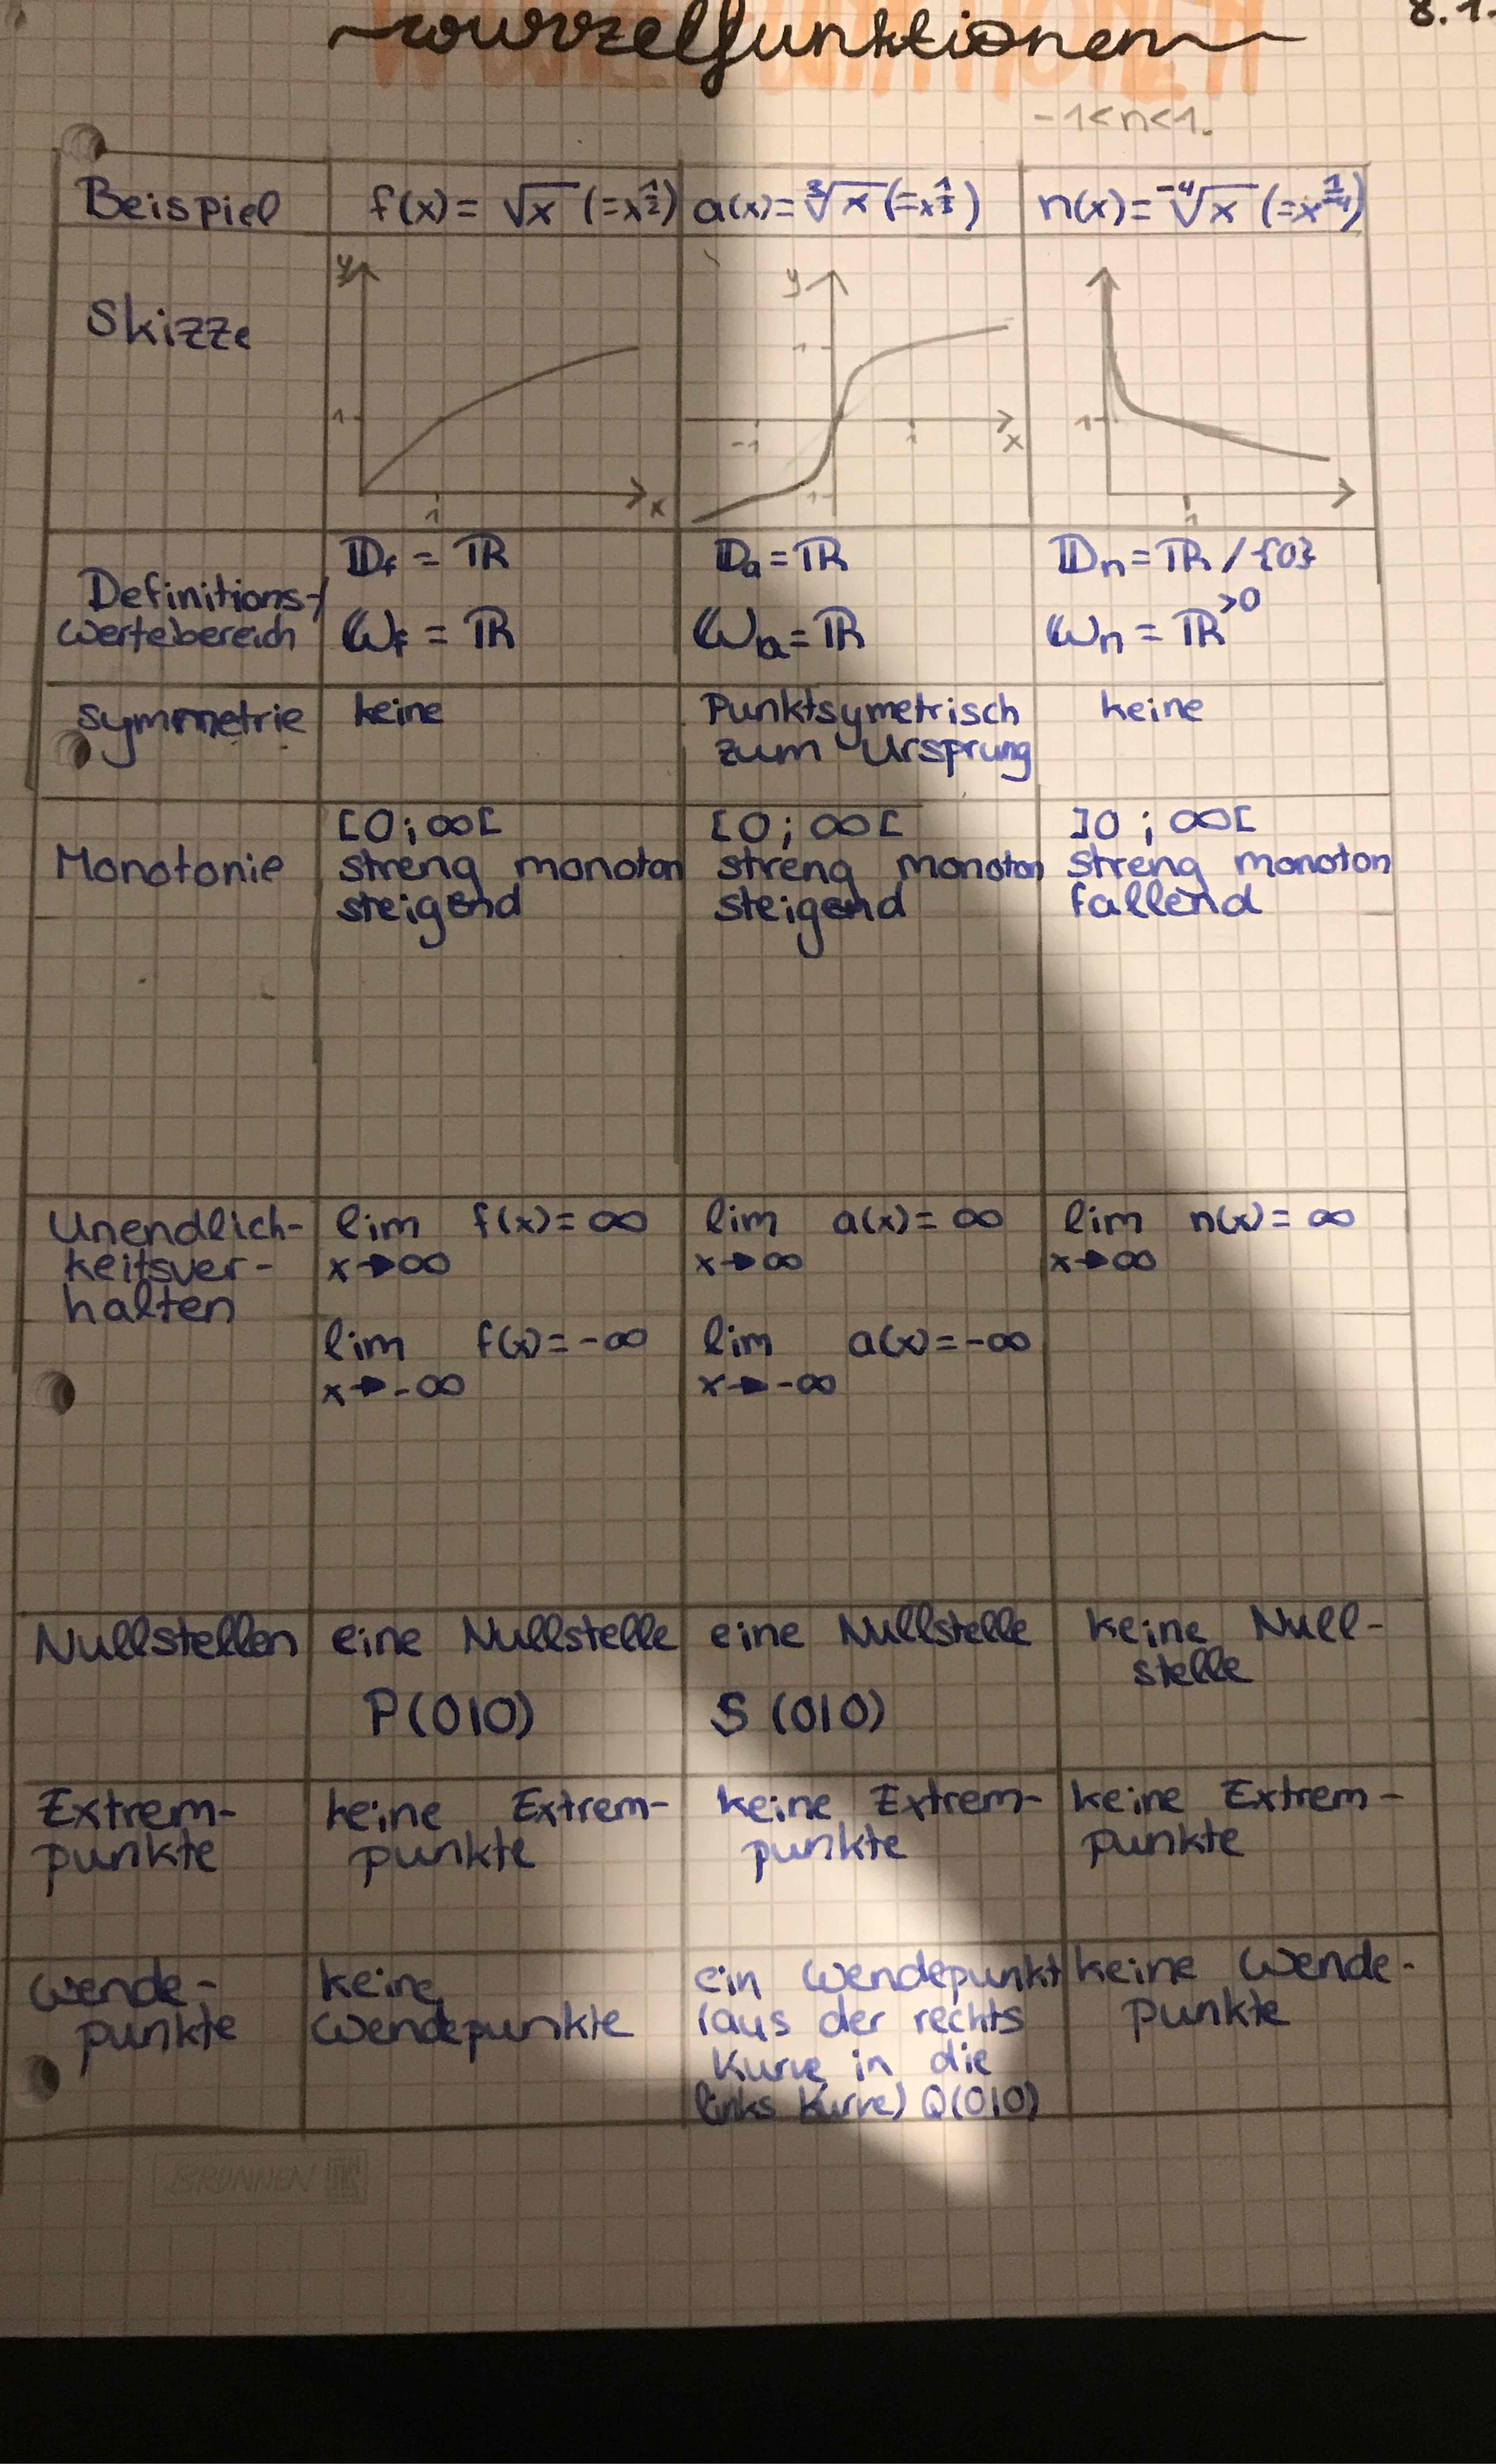 ~wurzelfunktionen~
WURZELFUNKTIONEN
8.1.
-1<n<1.
Beispiel
f(x) = √x (=x^1/2)
a(x) = ³√x (=x^1/3)
n(x) = ⁻⁴√x (=x^1/-4)
Skizze
y
1
1
x
y
1
-1
1
x
-1
1
1
Definitions-/
Wertebereich
𝔻f = ℝ
𝕎f = ℝ
𝔻a = ℝ
𝕎a = ℝ
𝔻n = ℝ / {0}
𝕎n = ℝ^>0
Symmetrie
keine
Punktsymetrisch
zum Ursprung
keine
Monotonie
[0 ; ∞[
streng monoton
steigend
[0 ; ∞[
streng monoton
steigend
]0 ; ∞[
streng monoton
fallend
Unendlich-
keitsver-
halten
lim f(x) = ∞
x→∞
lim f(x) = -∞
x→-∞
lim a(x) = ∞
x→∞
lim a(x) = -∞
x→-∞
lim n(x) = ∞
x→∞
Nullstellen
eine Nullstelle
P(0|0)
eine Nullstelle
S (0|0)
keine Null-
stelle
Extrem-
punkte
keine Extrem-
punkte
keine Extrem-
punkte
keine Extrem-
punkte
Wende-
punkte
keine
Wendepunkte
ein Wendepunkt
(aus der rechts
Kurve in die
links Kurve) Q(0|0)
keine Wende-
punkte
BRUNNEN